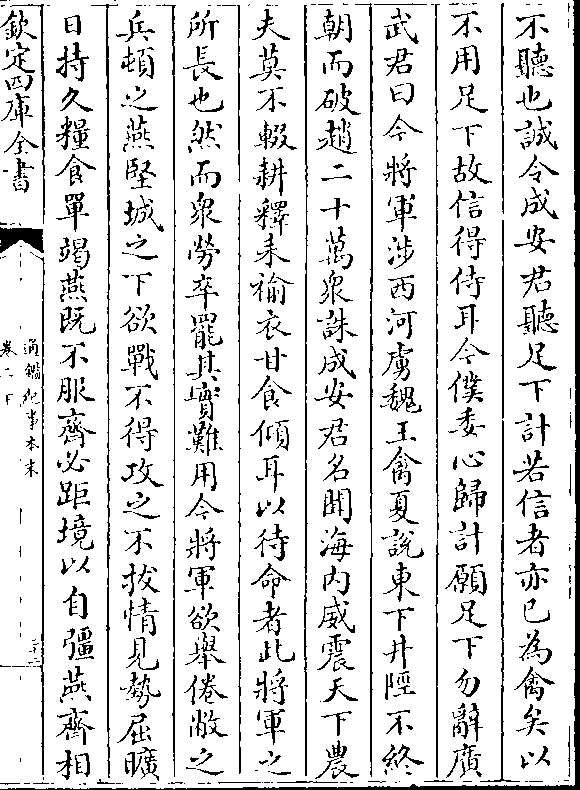 不聽也誠令成安君聽足下計若信者亦已為禽矣以
不用足下故信得侍耳今僕委心歸計願足下勿辭廣
武君曰今將軍涉西河虜魏王禽夏說東下井陘不終
朝而破趙二十萬衆誅成安君名聞海内威震天下農
夫莫不輟耕釋耒褕衣甘食傾耳以待命者此將軍之
所長也然而衆勞卒罷其實難用今將軍欲舉倦敝之
兵頓之燕堅城之下欲戰不得攻之不拔情見勢屈曠
日持久糧食單竭燕既不服齊必距境以自彊燕齊相
欽定四庫全書
通鑑紀事本末
卷二下